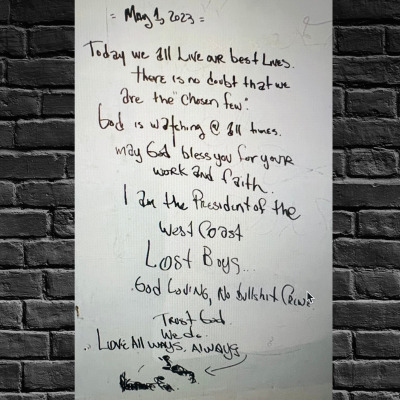 = May 1, 2023 =
Today we all Live our best Lives.
there is no doubt that we
are the "chosen few".
God is watching @ all times.
may God bless you for your
work and faith.
I am the President of the
West Coast
Lost Boys...
God Loving, No bullshit Crew
Trust God.
We do.
Love All ways, Always